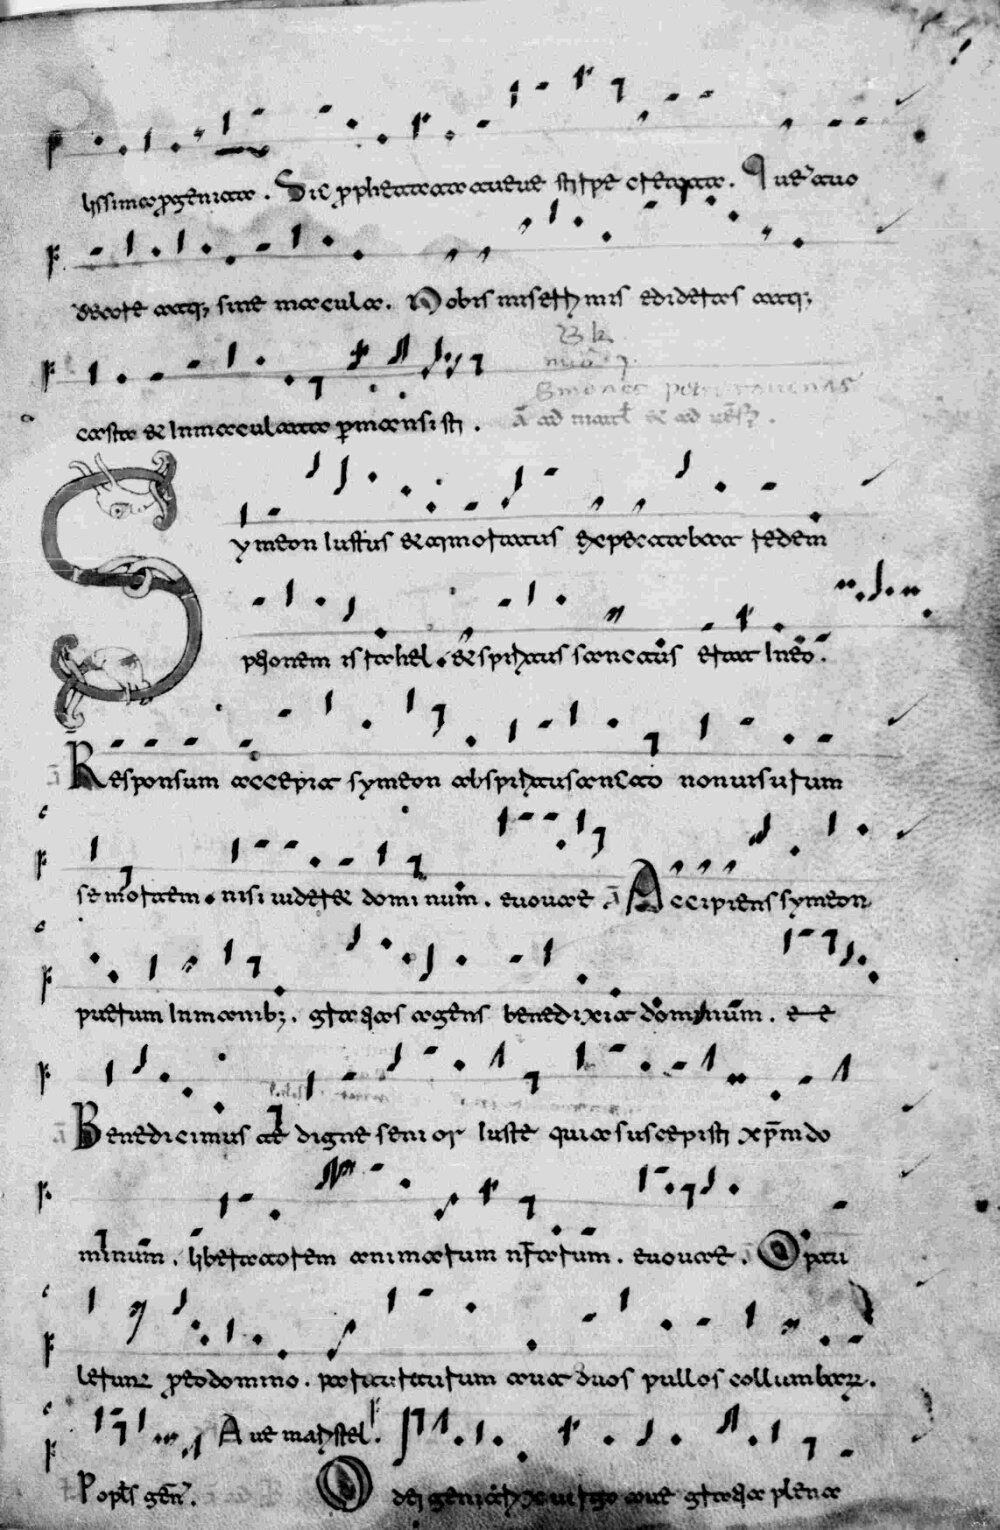 lissima progeniata. Sic prophetata aueue stirpe creata. Que auo
decore atq; sine macula. Nobis miseris miseris edideras atq;
casta & Inmaculata permansisti.
ā ad mart &  ad
Symeon Iustus & timoratus expectabat redem
ptionem israhel. & spiritus sanctus erat In eo.
Responsum accepit symeon ab spiritu sancto non uisurum
se mortem. nisi uideret dominum. euouae ā Accipiens symeon
puerum In manib;. gratias agens benedixit dominum. e e
Benedicimus te digne senior Iuste quia suscepisti xp̄m do
minum. liberatorem animarum nr̄arum. euouae. Opatu
lerunt pro eo domino. par turturum aut duos pullos collumbarum.
Aue maris stel.
Popl̄s gen̄. O dei genitrix uirgo aue gratia plena